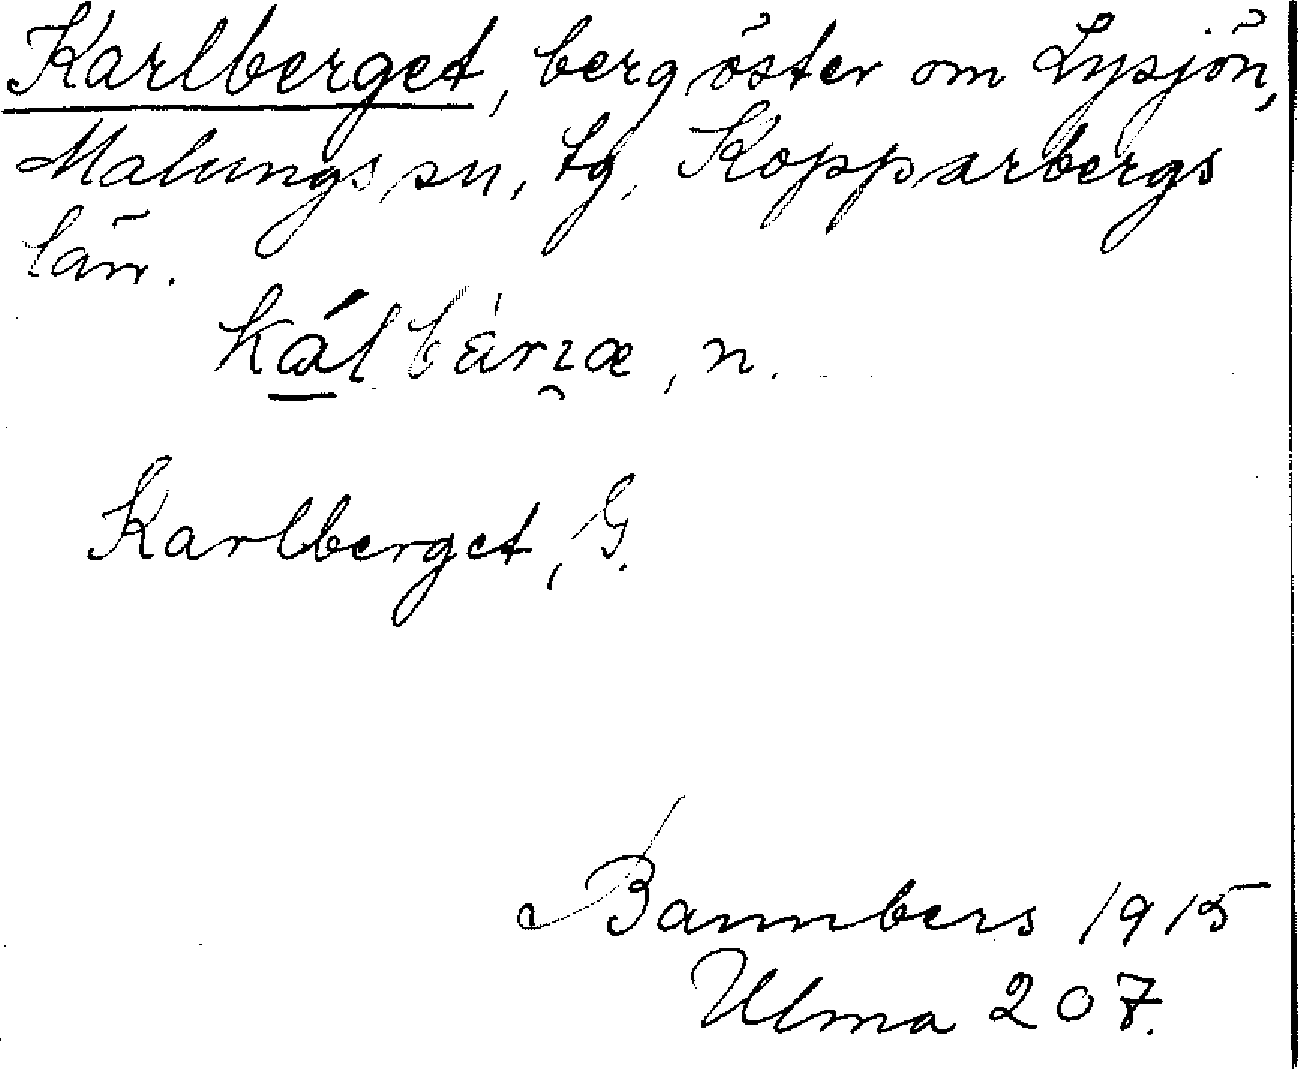 Karlberget, berg öster om Lysjön,
Malungs sn, tg, Kopparbergs
län.
kál bàrzæ, n.
Karlberget, G.
Bannbers 1915
Ulma 207.